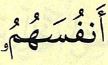 أَنفُسَهُمُۥ